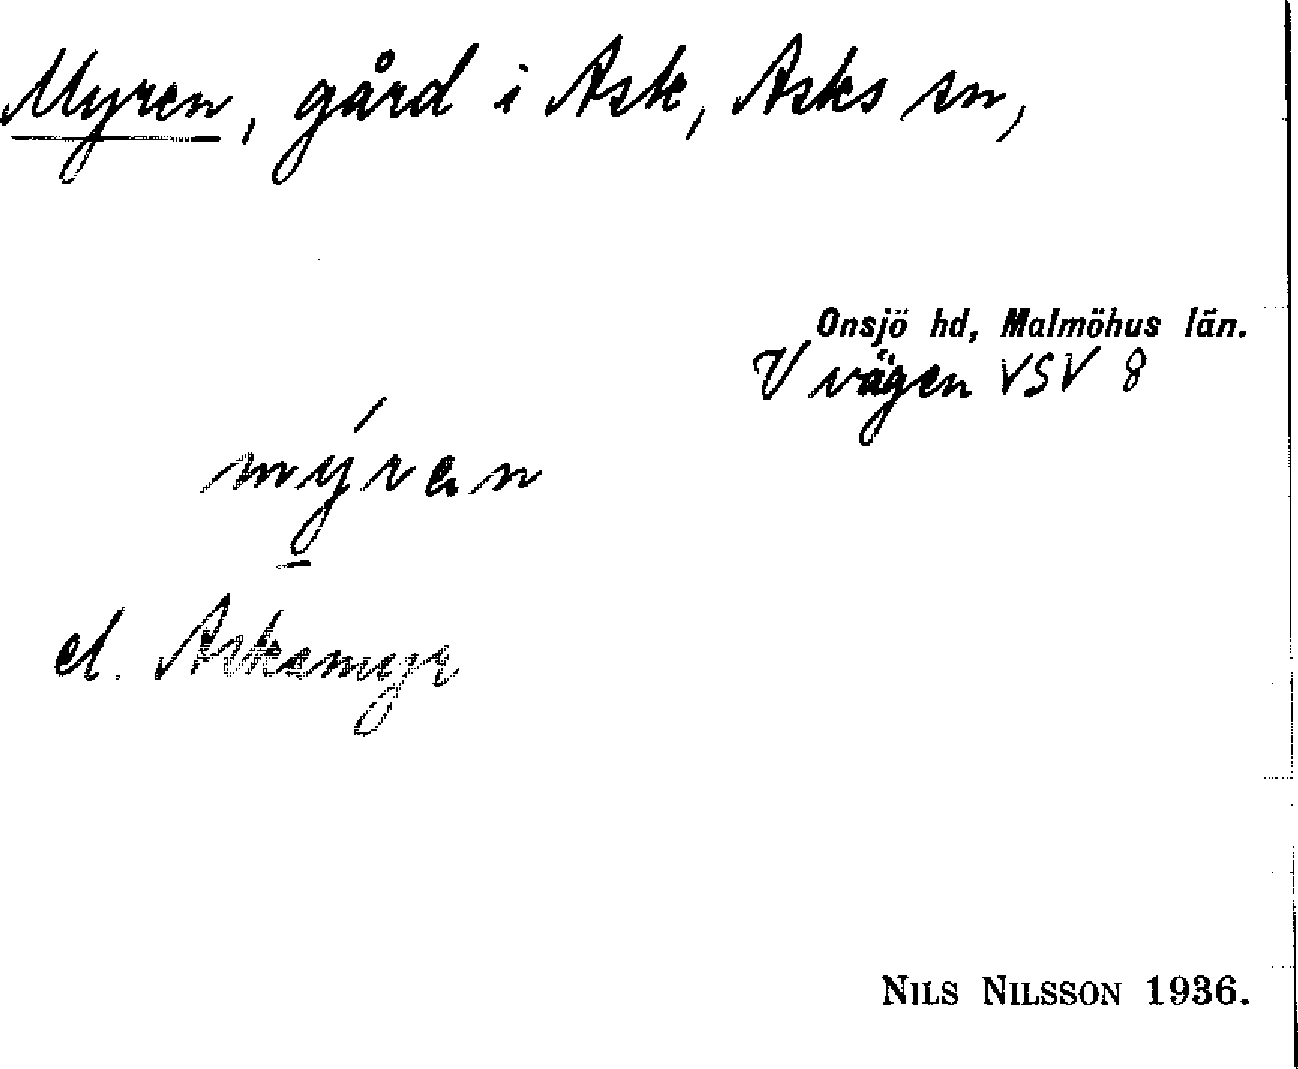 Myren, gård i Ask, Asks sn,
Onsjö hd, Malmöhus län.
V vägen VSV 8
mýran
el. Askamyr
NILS NILSSON 1936.